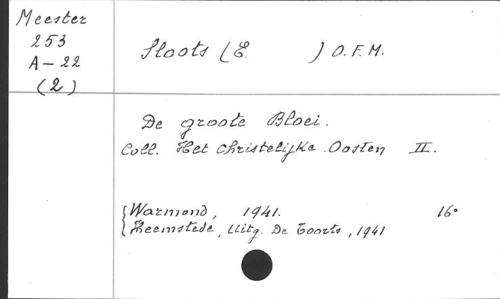 Meester
253
A-22
(2)
Sloots (E ) O.F.M.
De groote Bloei.
Coll. Het Christelijke Oosten II.
Warmond, 1941. 16°
Heemstede, Uitg. De Toorts, 1941